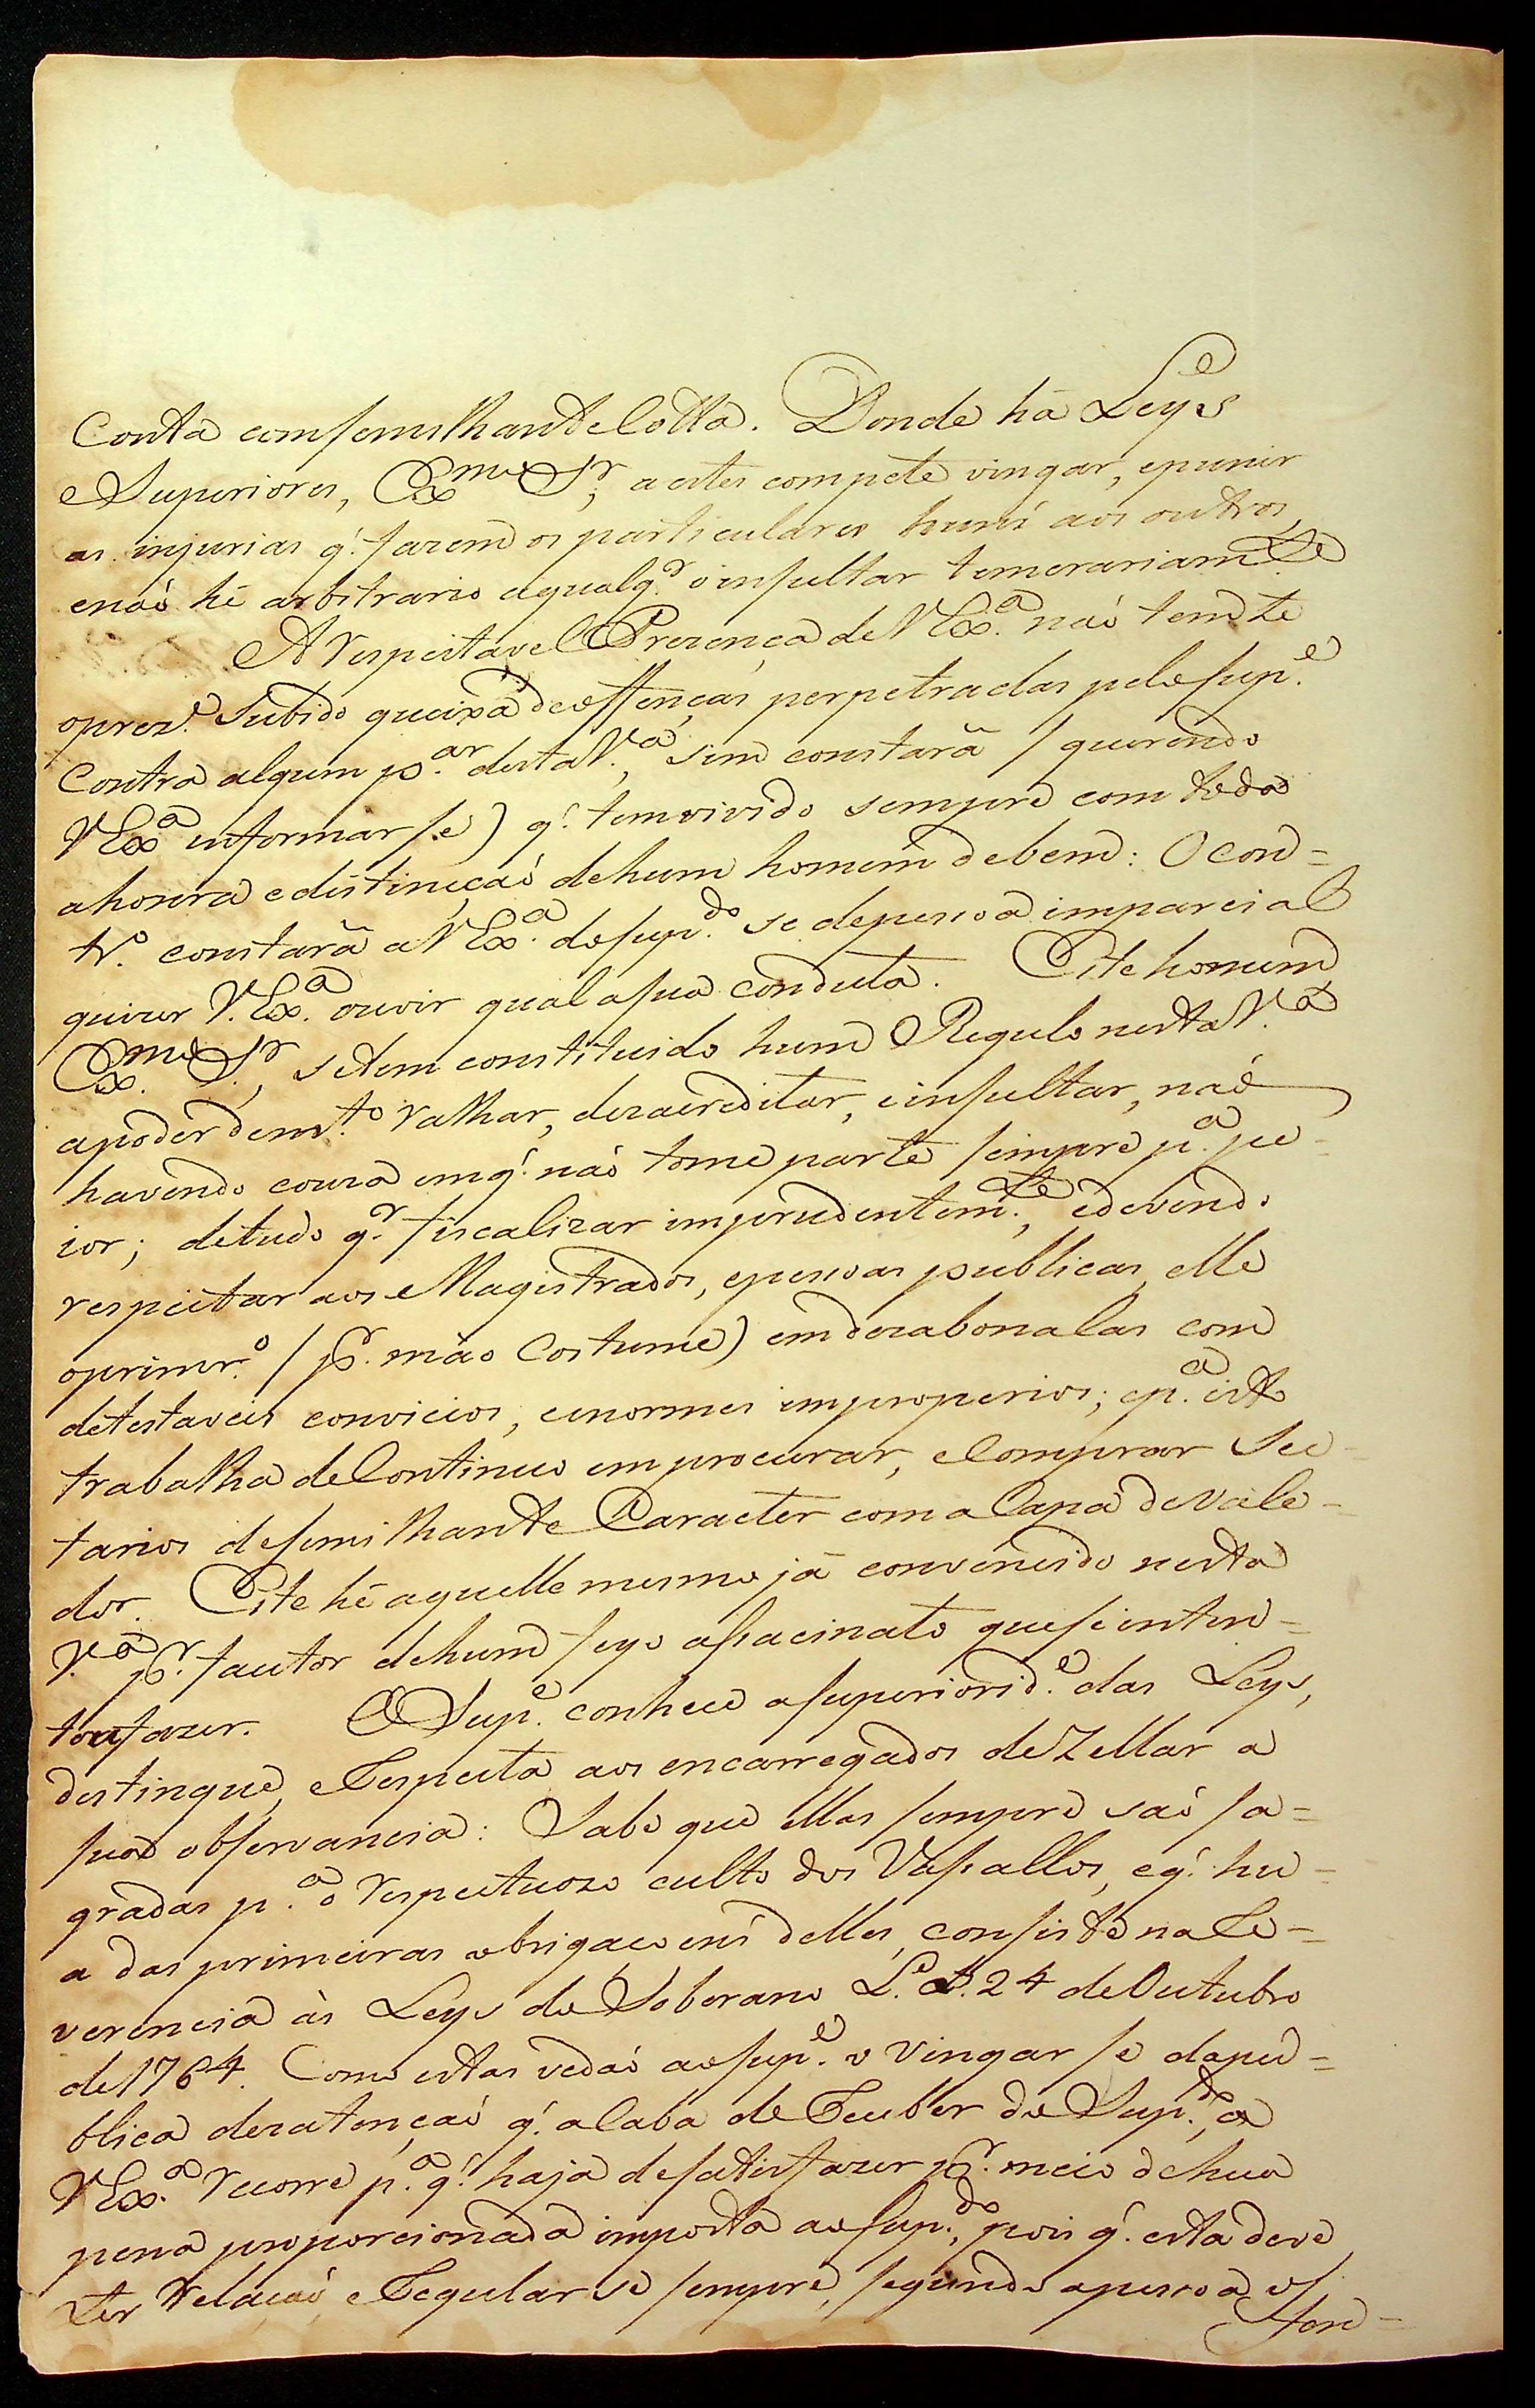 Conta com semilhante Cotta. Donde há Leys
e Superiores, Ex.mo Sr., a estes compete vingar, e punir
as injurias q.' fazem os particulares huns aos outros,
e naõ hé arbitrario a qualq.r o insultar temerariam.te
A respeitavel Prezença de V Ex.a naõ tem té
o prez.e subido queixa de offenças perpetradas pelo sup.e
Contra algum p.ar desta V.a, sim constará / querendo
V Ex.a informar se) q.' tem vivido sempre com toda
a honra e distincçaõ de hum homem de bem: O con=
tr.o constará a V Ex.a do sup.do se de pessoa imparcial
quizer V. Ex.a ouvir qual a sua conduta. Este homem
Ex.mo Sr., se tem constituido hum Regulo nesta V.a
a poder de m.to ralhar, dezacreditar, e insultar, naõ
havendo couza em q.' naõ tome parte sempre p.a pe=
ior; de tudo q.r fiscalizar imprudentem.te, e devendo
respeitar aos Magistrados, e pessoas publicas, elle
o primr.o / p.r máo Costume) em dezabonalas com
detestaveis convicios, e enormes improperios; e p.a isto
trabalha de Continuo em procurar, e Comprar Sec=
tarios de semilhante Caracter com a Capa de Vale=
dor. Este hé aquelle mesmo já convencido nesta
V.a p.r fautor de hum feyo assacinato que se inten=
tou fazer. O Sup.e conhece a superiorid.e das Leys,
destingue, e Respeita aos encarregados de Zellar a
sua observancia: Sabe que ellas sempre saõ sa=
gradas p.a o respeituozo culto dos Vassallos, e q.' hu=
a das primeiras obrigaçoens delles, consiste na Re=
verencia ás Leys do Soberano L. d. 24 de Outubro
de 1764. Como estas vedaõ ao sup.e o vingar se da pu=
blica dezatençaõ q.' acaba de Receber do Sup.do, a
V Ex.a recorre p.a q.' haja de satisfazer p.r meio de hua
pena proporcionada imposta ao sup.do, pois q.' esta deve
ter relaçaõ, e Regular se sempre, segundo a pessoa of
fen=